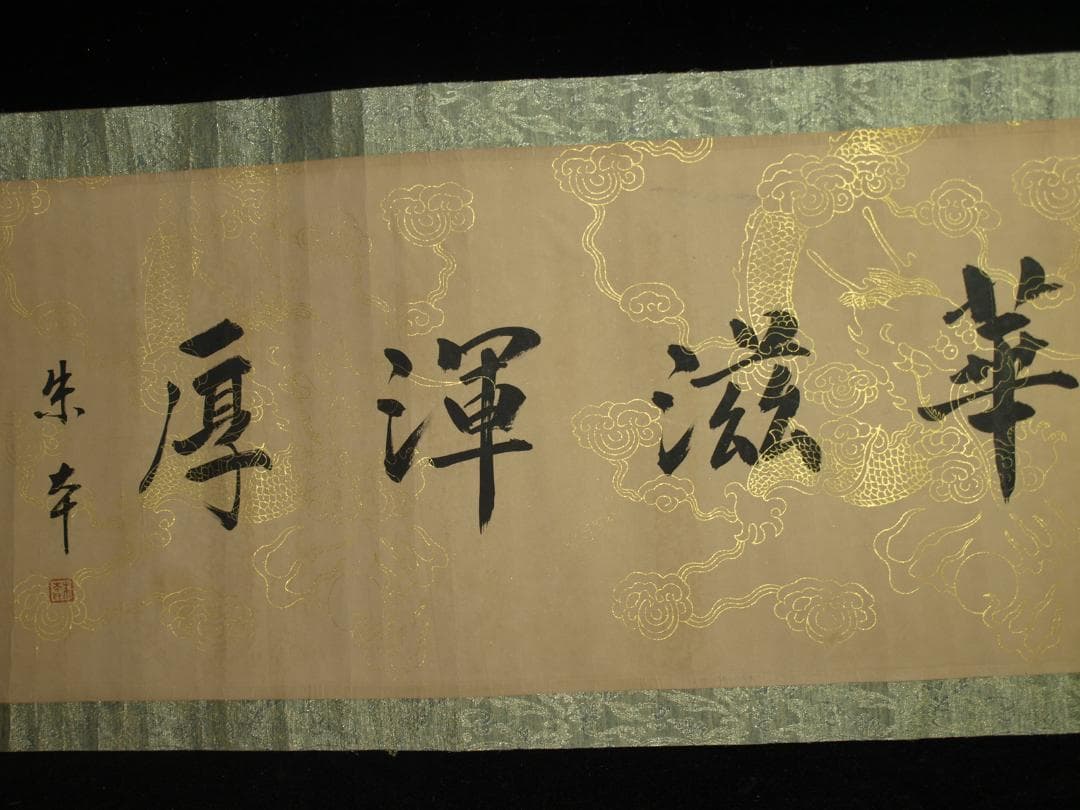 華滋渾厚
朱耷